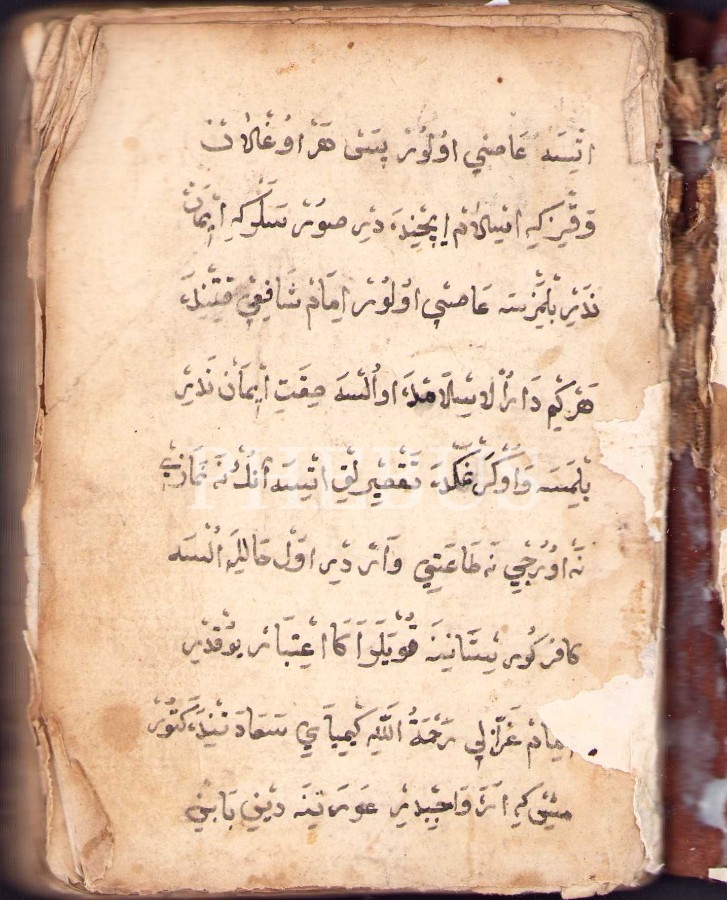 اتسه عاصي اولور پس هر اوغلان
و قيز که اسلام ايچنده در صورسلر که ايمان
ندر بلمزسه عاصي اولور امام شافعي قتنده
هر کيم دار الاسلامده اولسه صفت ايمان ندر
بلمسه و اوکرنمکده تقصيرلق اتسه انک نه نمازي
نه اورجي نه طاعتي واردر اول حاليله السه
کافر کورستاننه قويلر اکا اعتبار يوقدر
امام غزالي رحمة الله کيمياي سعادتنده کتورمش
کم اره واجبدر عورتنه ديني بابني
PHEBUS